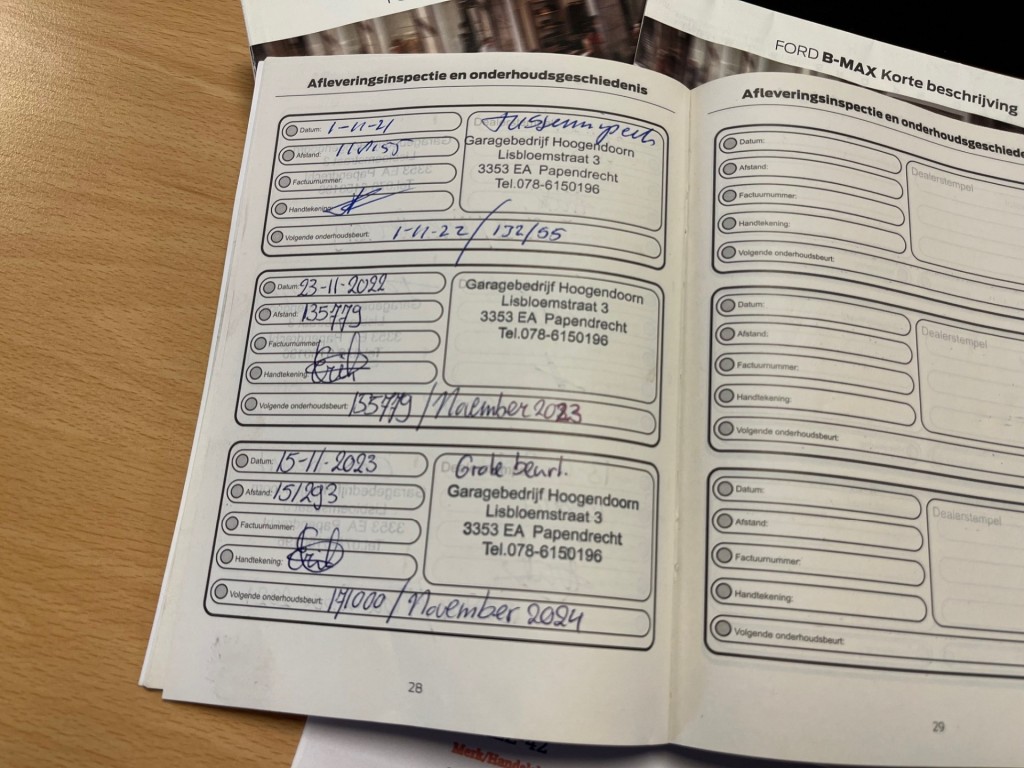 FORD B-MAX Korte beschrijving
Afleveringsinspectie en onderhoudsgeschiedenis
Datum: 1-11-21
Afstand:
Factuurnummer:
Handtekening:
Volgende onderhoudsbeurt: 1-11-22 / 132/55
Garagebedrijf Hoogendoorn
Lisbloemstraat 3
3353 EA Papendrecht
Tel.078-6150196
Datum: 23-11-2022
Afstand: 135779
Factuurnummer:
Handtekening:
Volgende onderhoudsbeurt: 135779 / November 2023
Garagebedrijf Hoogendoorn
Lisbloemstraat 3
3353 EA Papendrecht
Tel.078-6150196
Datum: 15-11-2023
Afstand: 151293
Factuurnummer:
Handtekening:
Volgende onderhoudsbeurt: 171000 / November 2024
Grote beurt.
Garagebedrijf Hoogendoorn
Lisbloemstraat 3
3353 EA Papendrecht
Tel.078-6150196
28
Afleveringsinspectie en onderhoudsgeschiede
Datum:
Afstand:
Factuurnummer:
Handtekening:
Volgende onderhoudsbeurt:
Dealerstempel
Datum:
Afstand:
Factuurnummer:
Handtekening:
Volgende onderhoudsbeurt:
Dealerstempel
Datum:
Afstand:
Factuurnummer:
Handtekening:
Volgende onderhoudsbeurt:
Dealerstempel
29